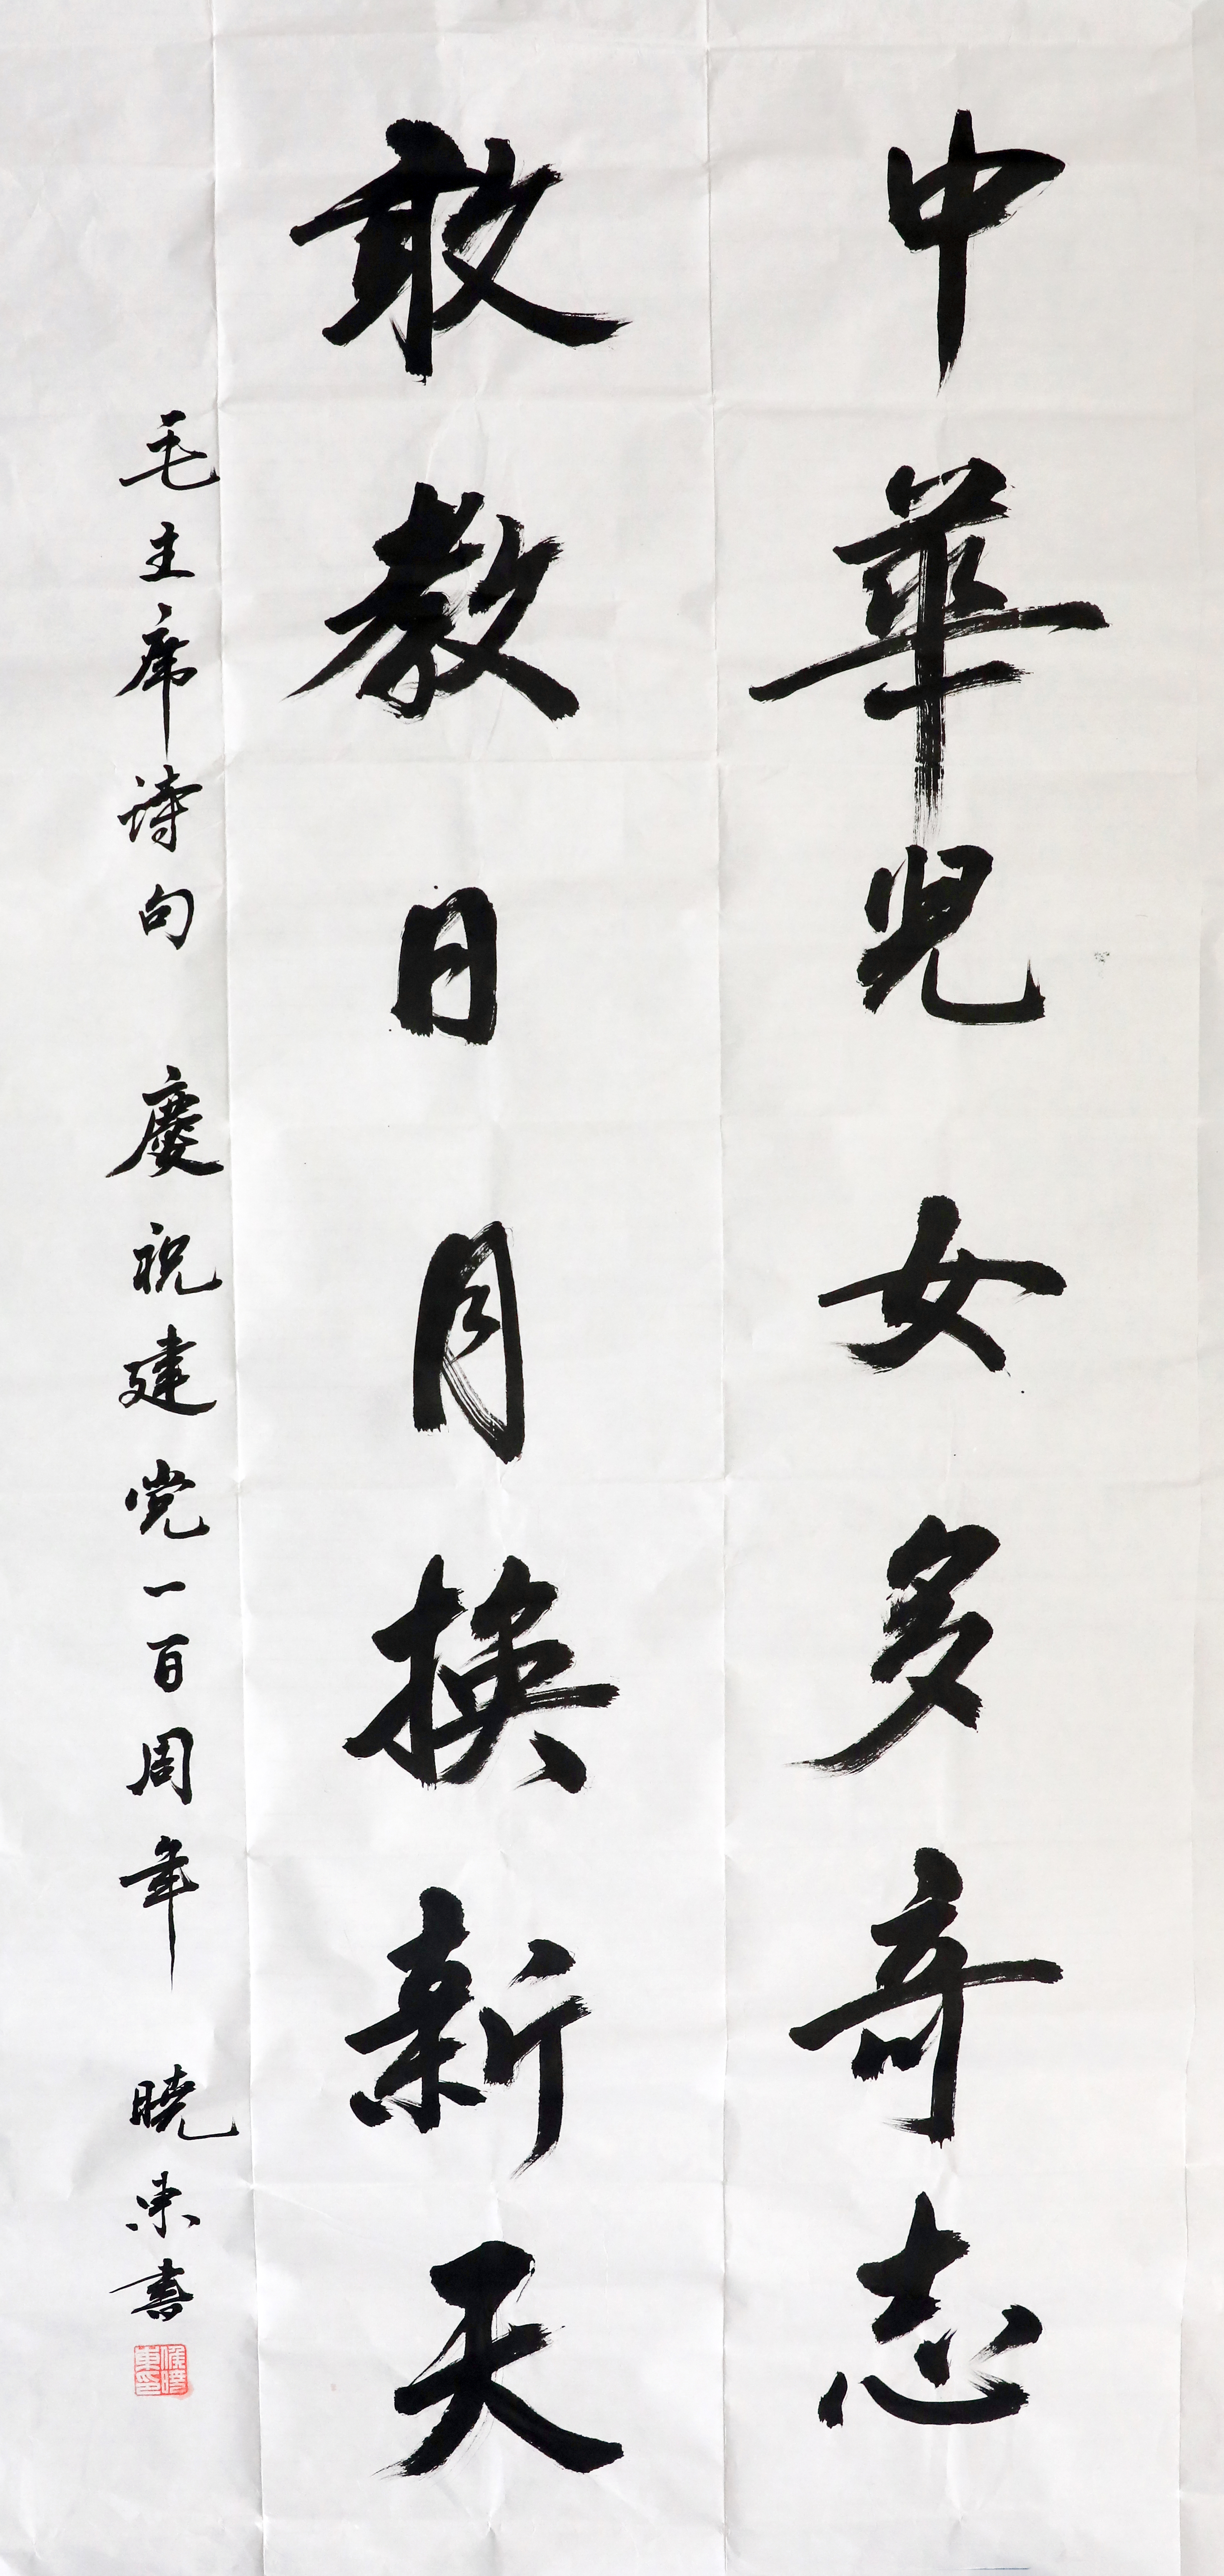 中華兒女多奇志
敢教日月換新天
毛主席诗句 慶祝建党一百周年 曉东書
侯曉東印